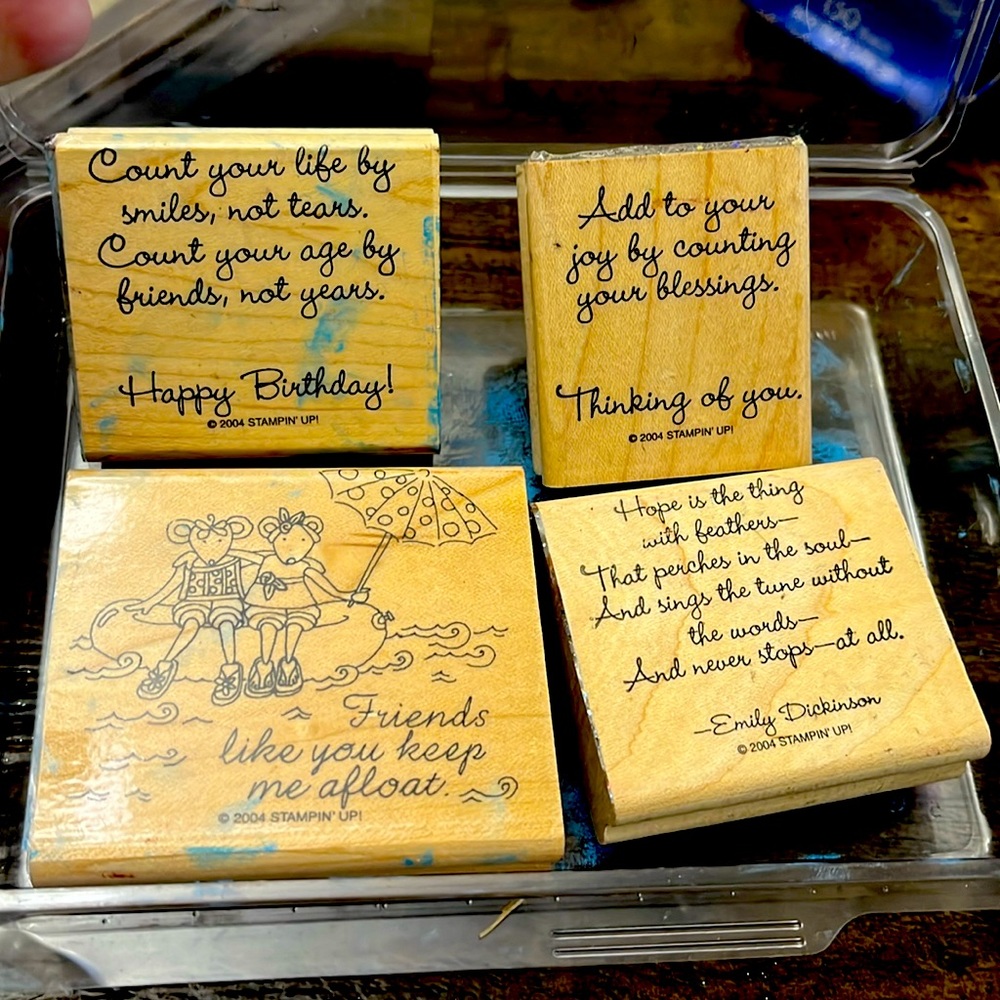 Count your life by
smiles, not tears.
Count your age by
friends, not years.
Happy Birthday!
© 2004 STAMPIN' UP!
Add to your
joy by counting
your blessings.
Thinking of you.
© 2004 STAMPIN' UP!
Friends
like you keep
me afloat.
© 2004 STAMPIN' UP!
Hope is the thing
with feathers—
That perches in the soul—
And sings the tune without
the words—
And never stops—at all.
—Emily Dickinson
© 2004 STAMPIN' UP!